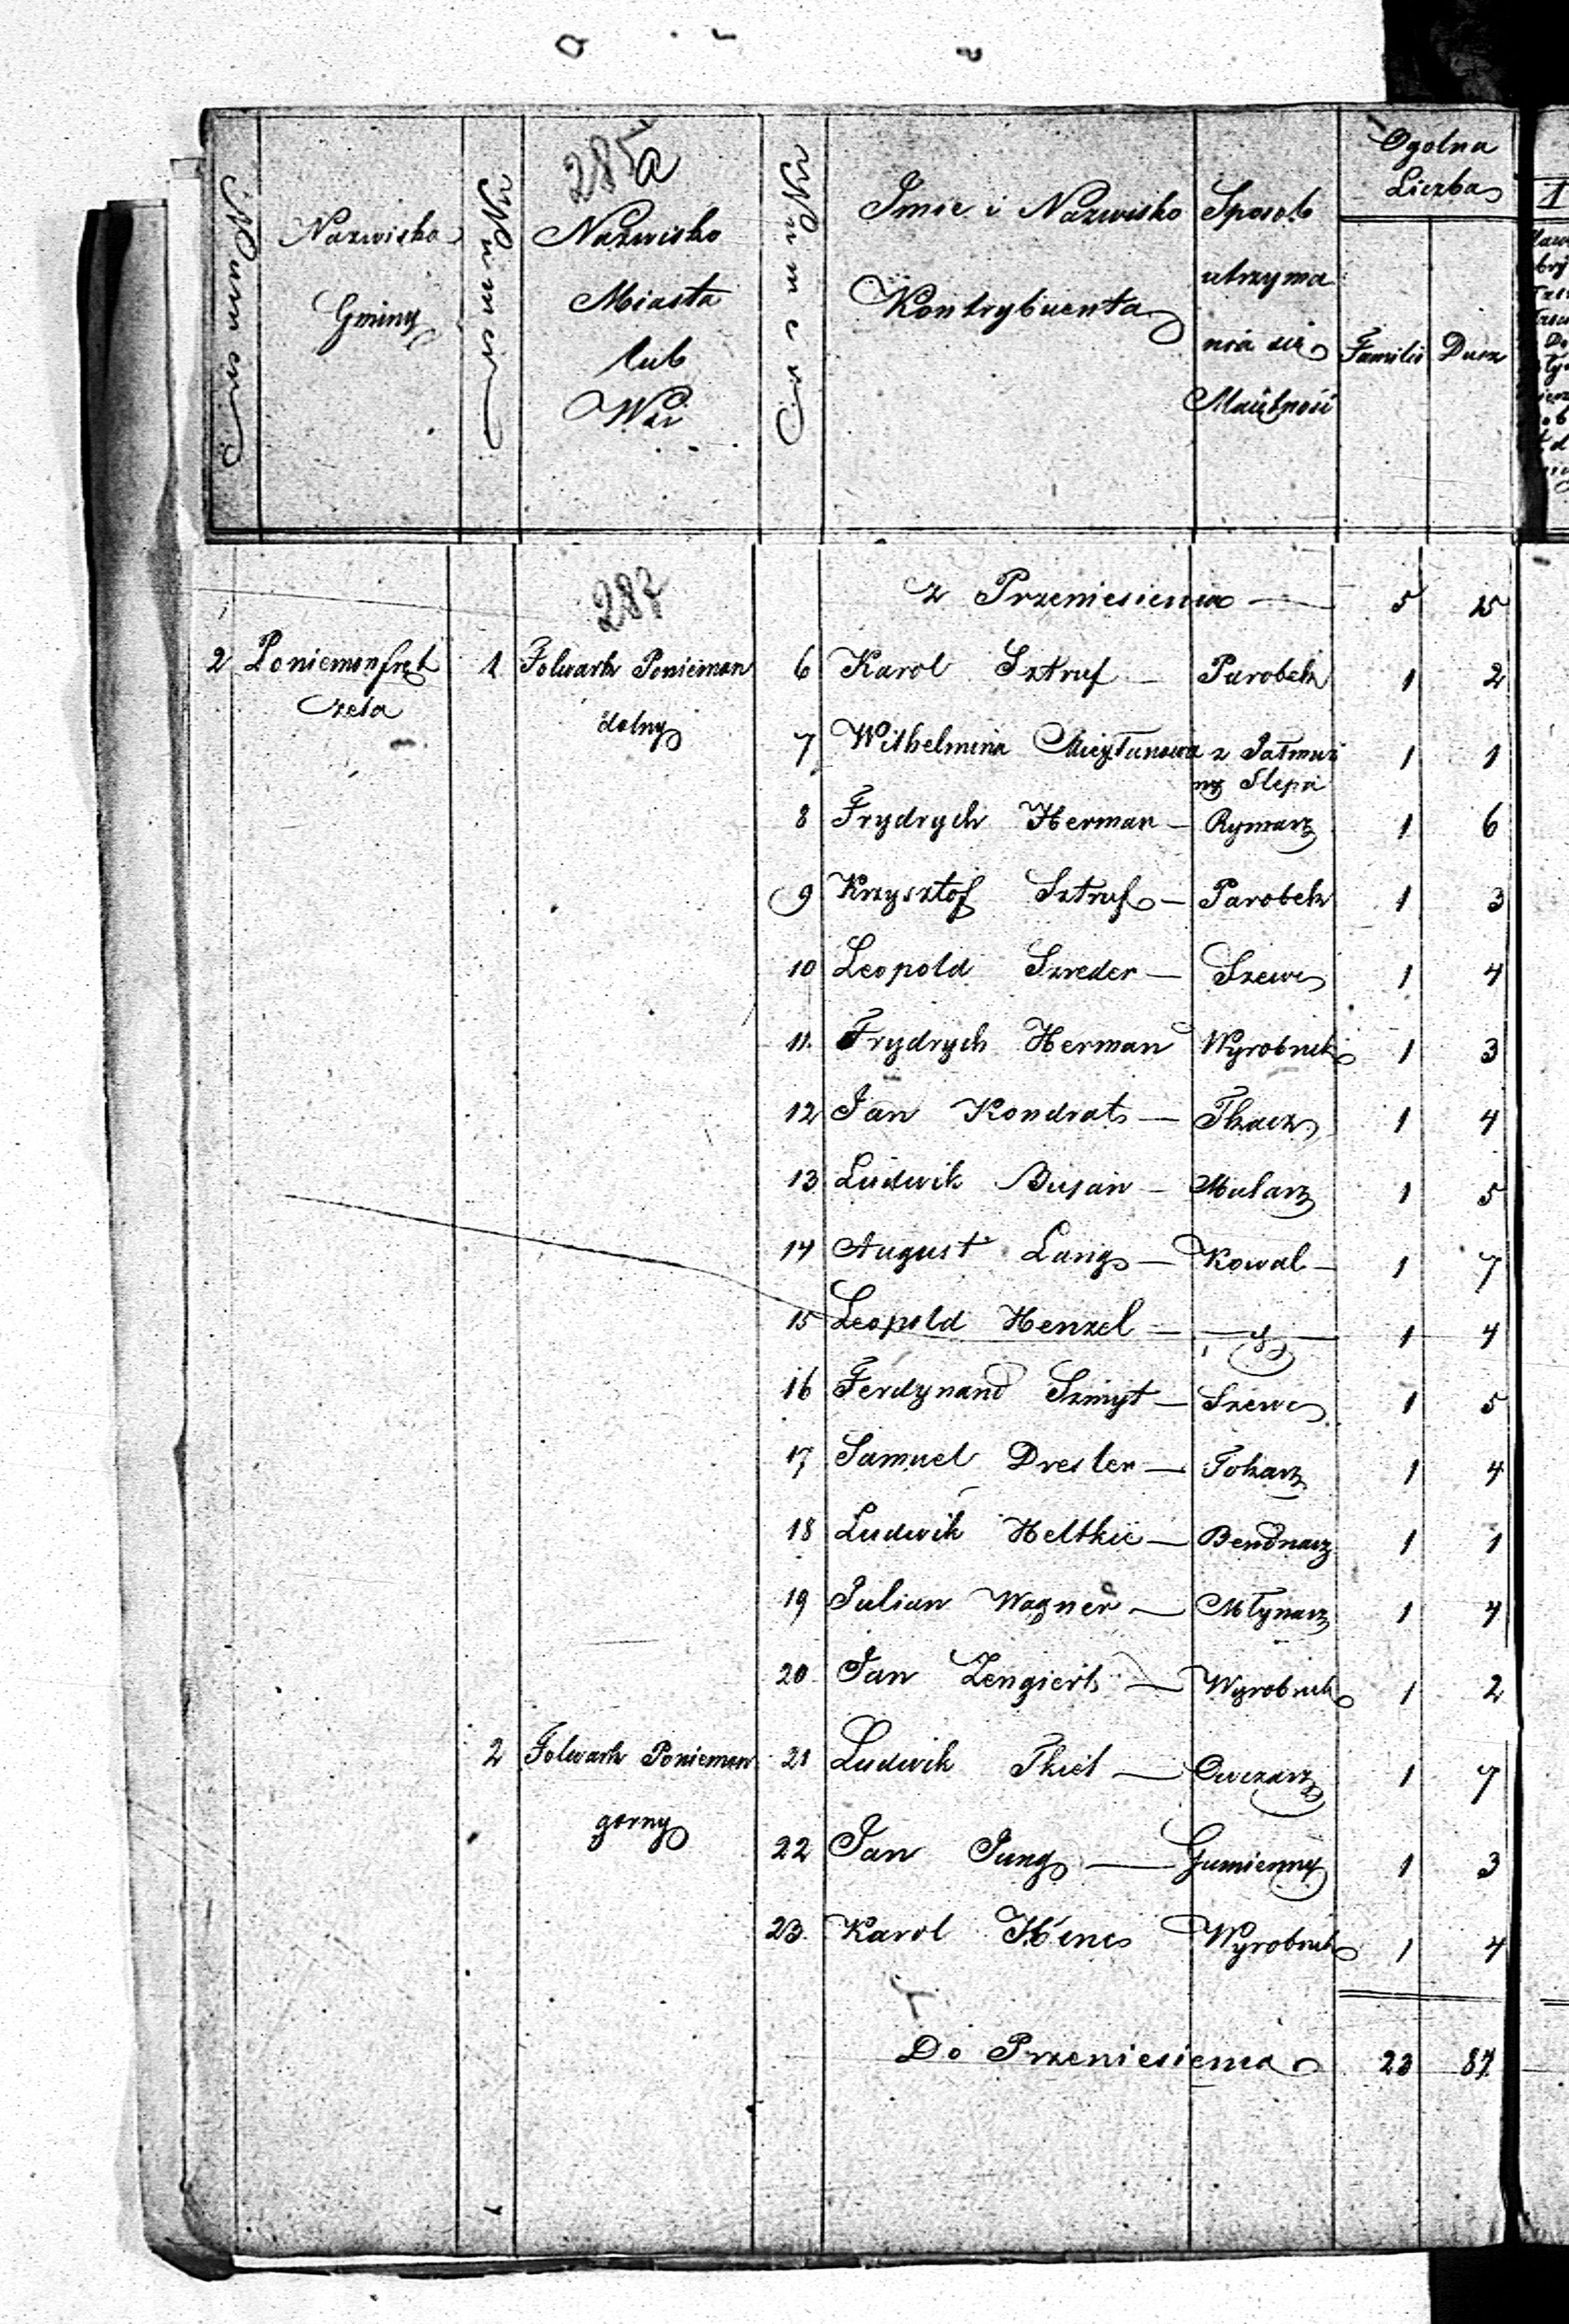 285a
Numer
Nazwisko Gminy
Numer
Nazwisko Miasta lub Wsi
Numer
Imie i Nazwisko Kontrybuenta
Sposob utrzyma nia sie
Ogolna Liczba
Familii
Dusz
287
z Przeniesienia — 5 25
2 Poniemonfręt 1 Folwark Poniemon 6 Karol Sztruf — Parobek 1 2
czela dolny
7 Wilhelmina z Jałmuż 1 1
ny Slepa
8 Frydrych Herman — Rymarz 1 6
9 Krzysztof Sztruf — Parobek 1 3
10 Leopold Szreder — Szewc 1 4
11. Frydrych Herman Wyrobnik 1 3
12 Jan Kondrat — Tkacz 1 4
13 Ludwik Busan — Mularz 1 5
14 August Lang — Kowal — 1 7
15 Leopold Henzel — 1 4
16 Ferdynand Szmyt — Szewc 1 5
17 Samuel Dresler — Tokarz 1 4
18 Ludwik — Bendnarz 1 1
19 Julian Wagner — Młynarz 1 4
20 Jan Zengiert — Wyrobnik 1 2
2 Folwark Poniemon 21 Ludwik Thiel — Owczarz 1 7
gorny
22 Jan Jung — Gumienny 1 3
23. Karol Wyrobnik 1 4
Do Przeniesienia 23 84